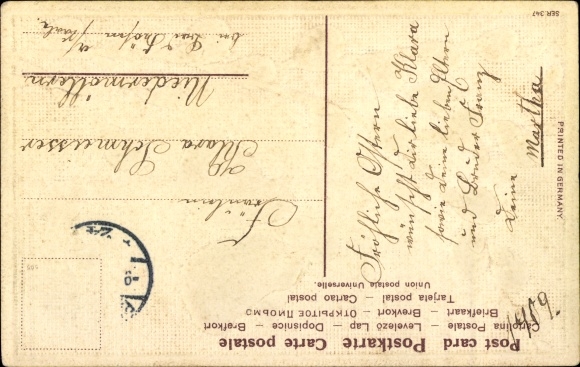 Post card Postkarte Carte postale
Cartolina Postale — Levelező Lap — Dopisnice — Brefkort
Briefkaart — Brevkort — ОТКРЫТОЕ ПИСЬМО
Tarjeta postal — Cartao postal
Union postale Universelle.
Fröhliche Ostern
wünscht dir liebe Klara
sowie deine lieben Eltern
und Bruder Franz
deine
Martha
Fräulein
Klara Schmeisser
Niedermöllern
bei
PRINTED IN GERMANY.
SER. 347